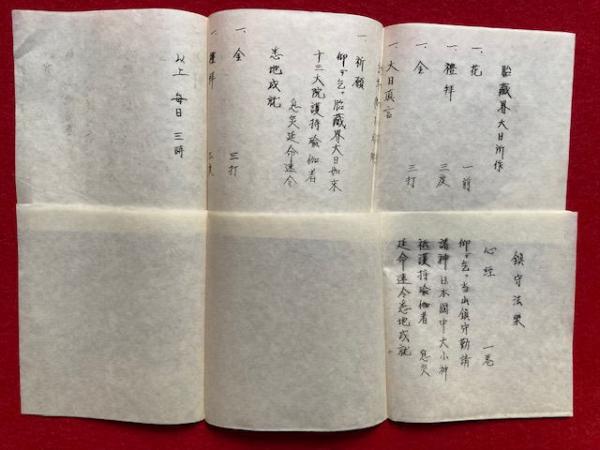 胎藏界大日所作
一、花 一前
一、禮拜 三度
一、金 三打
一、大日真言
一、祈願
仰ヶ乞ヶ胎藏界大日如来
十三大院護持瑜伽者
息災延命速令
悉地成就
一、金 三打
禮拜
以上 每日 三時
鎮守法樂
心経 一巻
仰ヶ乞ヶ当山鎮守勧請
諸神日本國中大小神
祇護持瑜伽者 息災
延命速令悉地成就